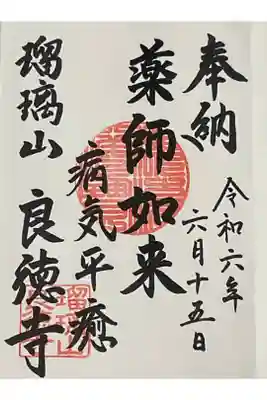 奉納
令和六年
六月十五日
薬師如来
病気平癒
瑠璃山
良徳寺